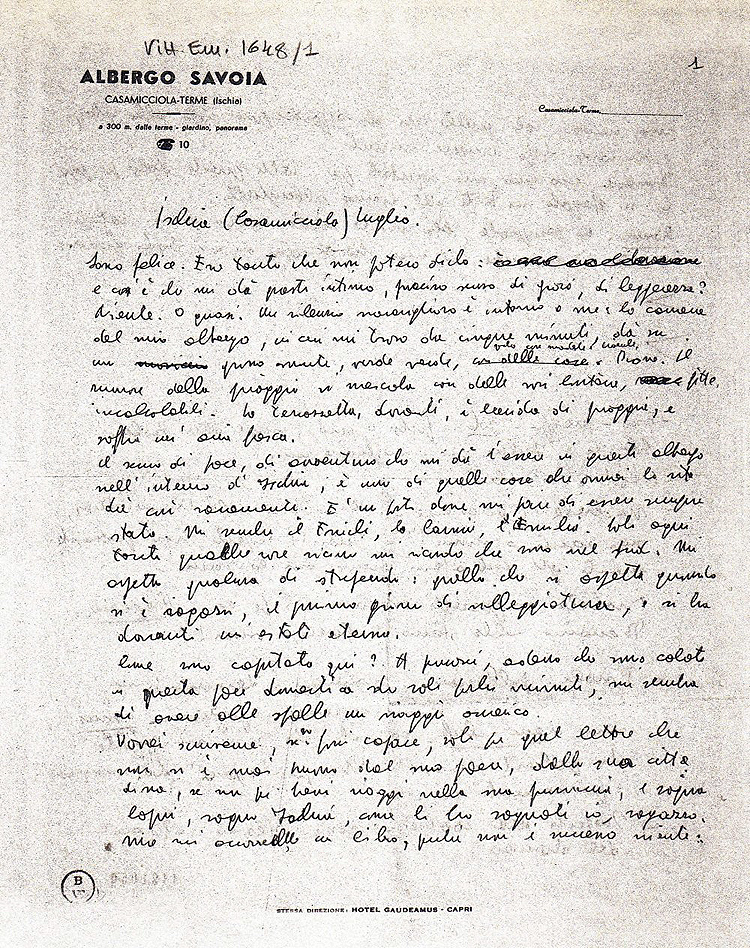 Vitt. Em. 1648/1
1
ALBERGO SAVOIA
CASAMICCIOLA-TERME (Ischia)
a 300 m. dalle terme - giardino, panorama
☎ 10
Casamicciola-Terme,
Ischia (Casamicciola) luglio.
Sono felice. Era tanto che non potevo dirlo:
e cos'è che mi dà questo intimo, preciso senso di gioia, di leggerezza?
Niente. O quasi. Un silenzio meraviglioso è intorno a me: la camera
del mio albergo, in cui mi trovo da cinque minuti, dà su
un grosso monte, verde verde, Piove. Il
rumore della pioggia si mescola con delle voci lontane, fitte,
incalcolabili. La terrazzetta, davanti, è lucida di pioggia, e
soffia un' aria fresca.
Il senso di pace, di avventura che mi dà l'essere in questo albergo
nell'interno di Ischia, è una di quelle cose che ormai la vita
dà così raramente. E' un posto dove mi pare di essere sempre
stato. Mi sembra il Friuli, la Carnia, l'Emilia.
Mi
aspetta qualcosa di stupendo: quello che si aspetta quando
si è ragazzi, il primo giorno di villeggiatura, e si ha
davanti un'estate eterna.
Come sono capitato qui? A pensarci, adesso che sono calato
in questa pace domestica da soli pochi minuti, mi sembra
di avere alle spalle un viaggio omerico.
Vorrei scriverne, se ne fossi capace, solo per quel lettore che
non si è mai mosso dal suo paese, dalla sua città
se non per brevi viaggi nella sua provincia, e sogna
Capri, sogna Ischia, come li ho sognati io, ragazzo.
Ma mi occorrerebbe un libro, perché non è successo niente:
B
STESSA DIREZIONE: HOTEL GAUDEAMUS - CAPRI